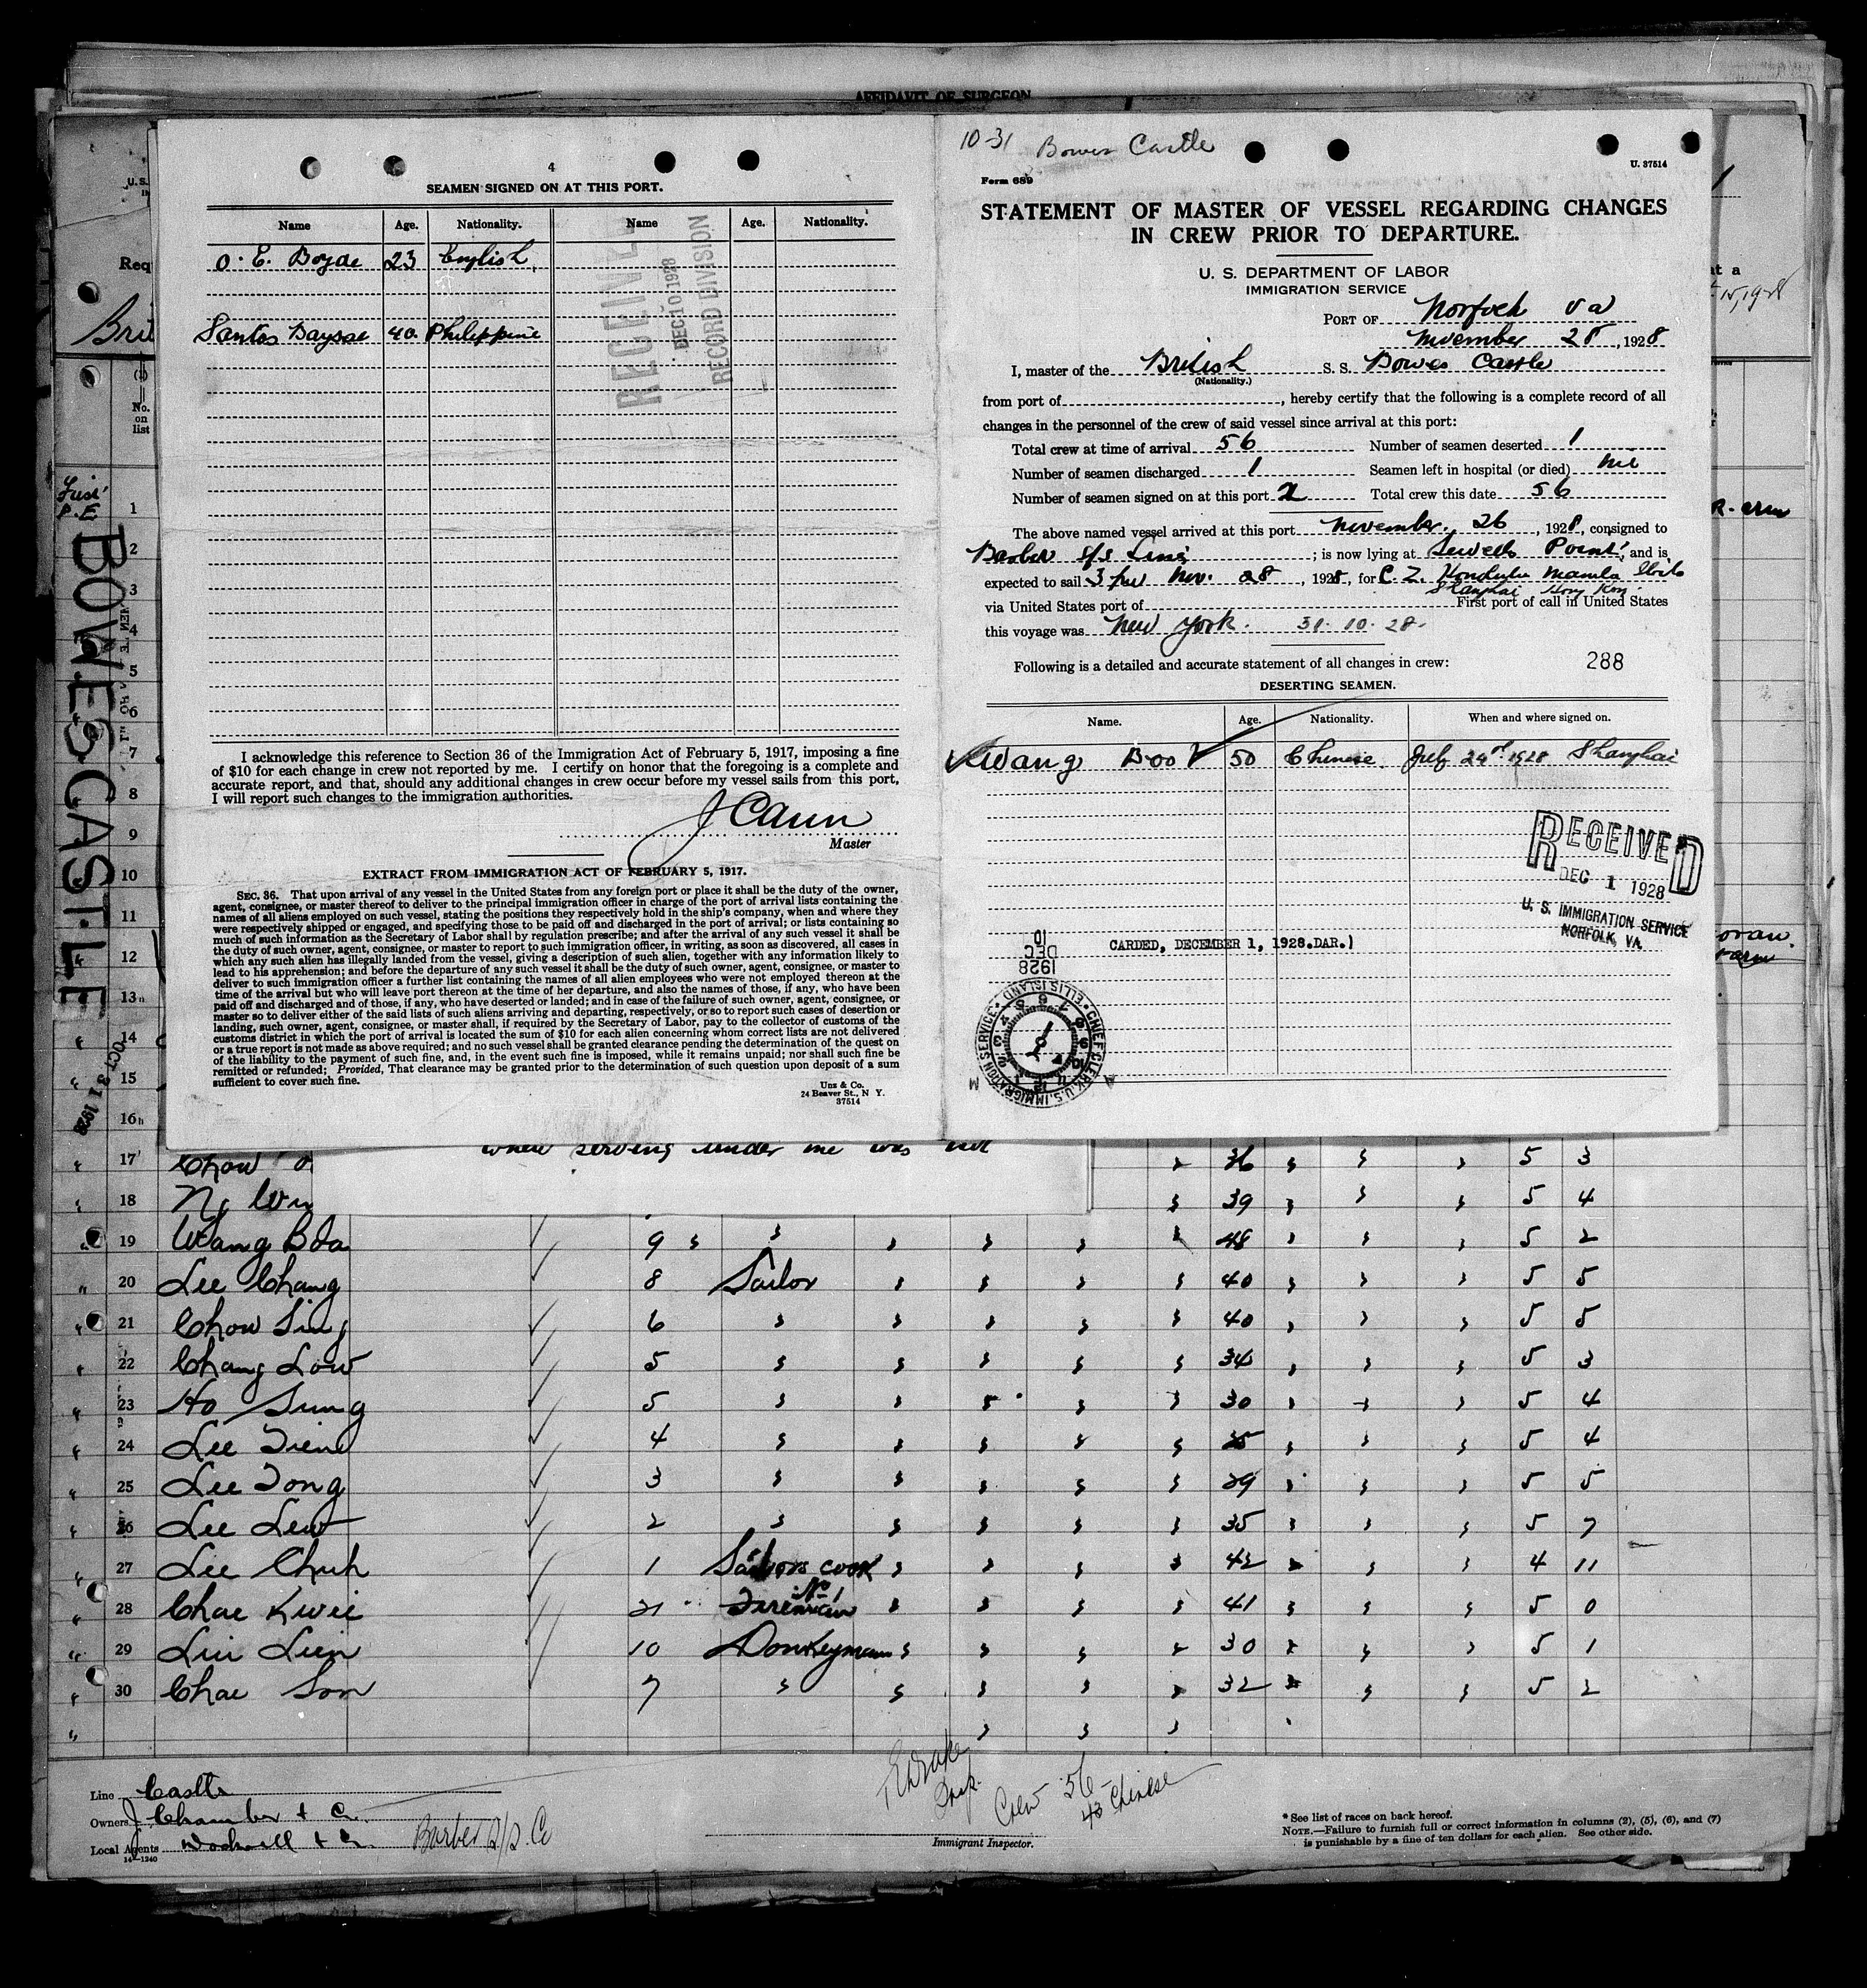 AFFIDAVIT OF SURGEON
4
SEAMEN SIGNED ON AT THIS PORT.
Name Age. Nationality. Name Age. Nationality.
O. E. Boyde 23 English
Santos Baysae 40 Philippine
RECEIVED
DEC 10 1928
RECORD DIVISION
I acknowledge this reference to Section 36 of the Immigration Act of February 5, 1917, imposing a fine
of $10 for each change in crew not reported by me. I certify on honor that the foregoing is a complete and
accurate report, and that, should any additional changes in crew occur before my vessel sails from this port,
I will report such changes to the immigration authorities.
J Cann
Master
EXTRACT FROM IMMIGRATION ACT OF FEBRUARY 5, 1917.
SEC. 36. That upon arrival of any vessel in the United States from any foreign port or place it shall be the duty of the owner,
agent, consignee, or master thereof to deliver to the principal immigration officer in charge of the port of arrival lists containing the
names of all aliens employed on such vessel, stating the positions they respectively hold in the ship's company, when and where they
were respectively shipped or engaged, and specifying those to be paid off and discharged in the port of arrival; or lists containing so
much of such information as the Secretary of Labor shall by regulation prescribe; and after the arrival of any such vessel it shall be
the duty of such owner, agent, consignee, or master to report to such immigration officer, in writing, as soon as discovered, all cases in
which any such alien has illegally landed from the vessel, giving a description of such alien, together with any information likely to
lead to his apprehension; and before the departure of any such vessel it shall be the duty of such owner, agent, consignee, or master to
deliver to such immigration officer a further list containing the names of all alien employees who were not employed thereon at the
time of the arrival but who will leave port thereon at the time of her departure, and also the names of those, if any, who have been
paid off and discharged and of those, if any, who have deserted or landed; and in case of the failure of such owner, agent, consignee, or
master so to deliver either of the said lists of such aliens arriving and departing, respectively, or so to report such cases of desertion or
landing, such owner, agent, consignee, or master shall, if required by the Secretary of Labor, pay to the collector of customs of the
customs district in which the port of arrival is located the sum of $10 for each alien concerning whom correct lists are not delivered
or a true report is not made as above required; and no such vessel shall be granted clearance pending the determination of the quest on
of the liability to the payment of such fine, and, in the event such fine is imposed, while it remains unpaid; nor shall such fine be
remitted or refunded; Provided, That clearance may be granted prior to the determination of such question upon deposit of a sum
sufficient to cover such fine.
Unz & Co.
24 Beaver St., N Y.
37514
10-31 Bowes Castle
U. 37514
Form 689
STATEMENT OF MASTER OF VESSEL REGARDING CHANGES
IN CREW PRIOR TO DEPARTURE.
U. S. DEPARTMENT OF LABOR
IMMIGRATION SERVICE
PORT OF Norfolk Va
November 28, 1928
I, master of the British S. S. Bowes Castle
(Nationality.)
from port of , hereby certify that the following is a complete record of all
changes in the personnel of the crew of said vessel since arrival at this port:
Total crew at time of arrival 56 Number of seamen deserted 1
Number of seamen discharged 1 Seamen left in hospital (or died) nil
Number of seamen signed on at this port 2 Total crew this date 56
The above named vessel arrived at this port November 26, 1928, consigned to
Barber s/s Line ; is now lying at Sewells Point, and is
expected to sail 3 pm Nov. 28, 1928, for C. Z. Honolulu Manila
Shanghai Hong Kong
via United States port of First port of call in United States
this voyage was New York. 31. 10. 28.
Following is a detailed and accurate statement of all changes in crew:
288
DESERTING SEAMEN.
Name. Age. Nationality. When and where signed on.
Wang Boo 50 Chinese July 24th 1928 Shanghai
RECEIVED
DEC 1 1928
U. S. IMMIGRATION SERVICE
NORFOLK, VA.
CARDED, DECEMBER 1, 1928.DAR.)
DEC 10
1928
CHIEF CLERK, U.S. IMMIGRATION SERVICE ELLIS ISLAND
BOWES CASTLE
OCT 31 1928
U.S.
Req
Brit
No.
on
list
1
2
3
4
5
6
7
8
9
10
11
12
13
14
15
16
when serving under me was not
17 Chow 36 5 3
18 Ng 39 5 4
19 Wang Boo 9 48 5 2
20 Lee Chang 8 Sailor 40 5 5
21 Chow Sing 6 40 5 5
22 Chang Low 5 34 5 3
23 Ho Sung 5 30 5 4
24 Lee Tien 4 35 5 4
25 Lee Tong 3 29 5 5
26 Lee Lew 2 35 5 7
27 Lee Chuh 1 Sailors cook 42 4 11
28 Chae Kwei 21 No 1 Fireman 41 5 0
29 Lui Lien 10 Donkeyman 30 5 1
30 Chae Son 7 32 5 2
Line Castle
Owners J Chamber & Co.
Local Agents Barber S/S. Co
14—1240
Crew 56 -
43 Chinese
Immigrant Inspector.
* See list of races on back hereof.
NOTE.—Failure to furnish full or correct information in columns (2), (5), (6), and (7)
is punishable by a fine of ten dollars for each alien. See other side.